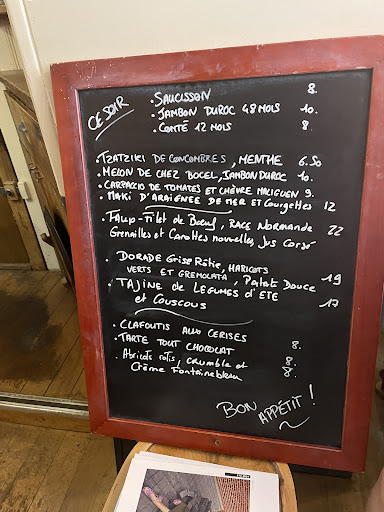 CE SOIR
• SAUCISSON 8.
• JAMBON DUROC 48 MOIS 10.
• COMTÉ 12 MOIS 8.
• TZATZIKI DE CONCOMBRES, MENTHE 6.50
• MELON DE CHEZ BOCEL, JAMBON DUROC 10.
• CARPACCIO DE TOMATES ET CHÈVRE 9.
• MAKI D'ARAIGNÉE DE MER ET COURGETTES 12
• FAUX-FILET DE BOEUF, RACE NORMANDE 22
Grenailles et Carottes nouvelles, Jus Corsé
• DORADE GRISE RÔTIE, HARICOTS
VERTS ET GREMOLATA, PATATE DOUCE 19
• TAJINE DE LEGUMES D'ETE
et COUSCOUS 17
• CLAFOUTIS AUX CERISES 8.
• TARTE TOUT CHOCOLAT 8.
• Abricots rotis, crumble et
Crème Fontainebleau 8.
BON APPÉTIT!